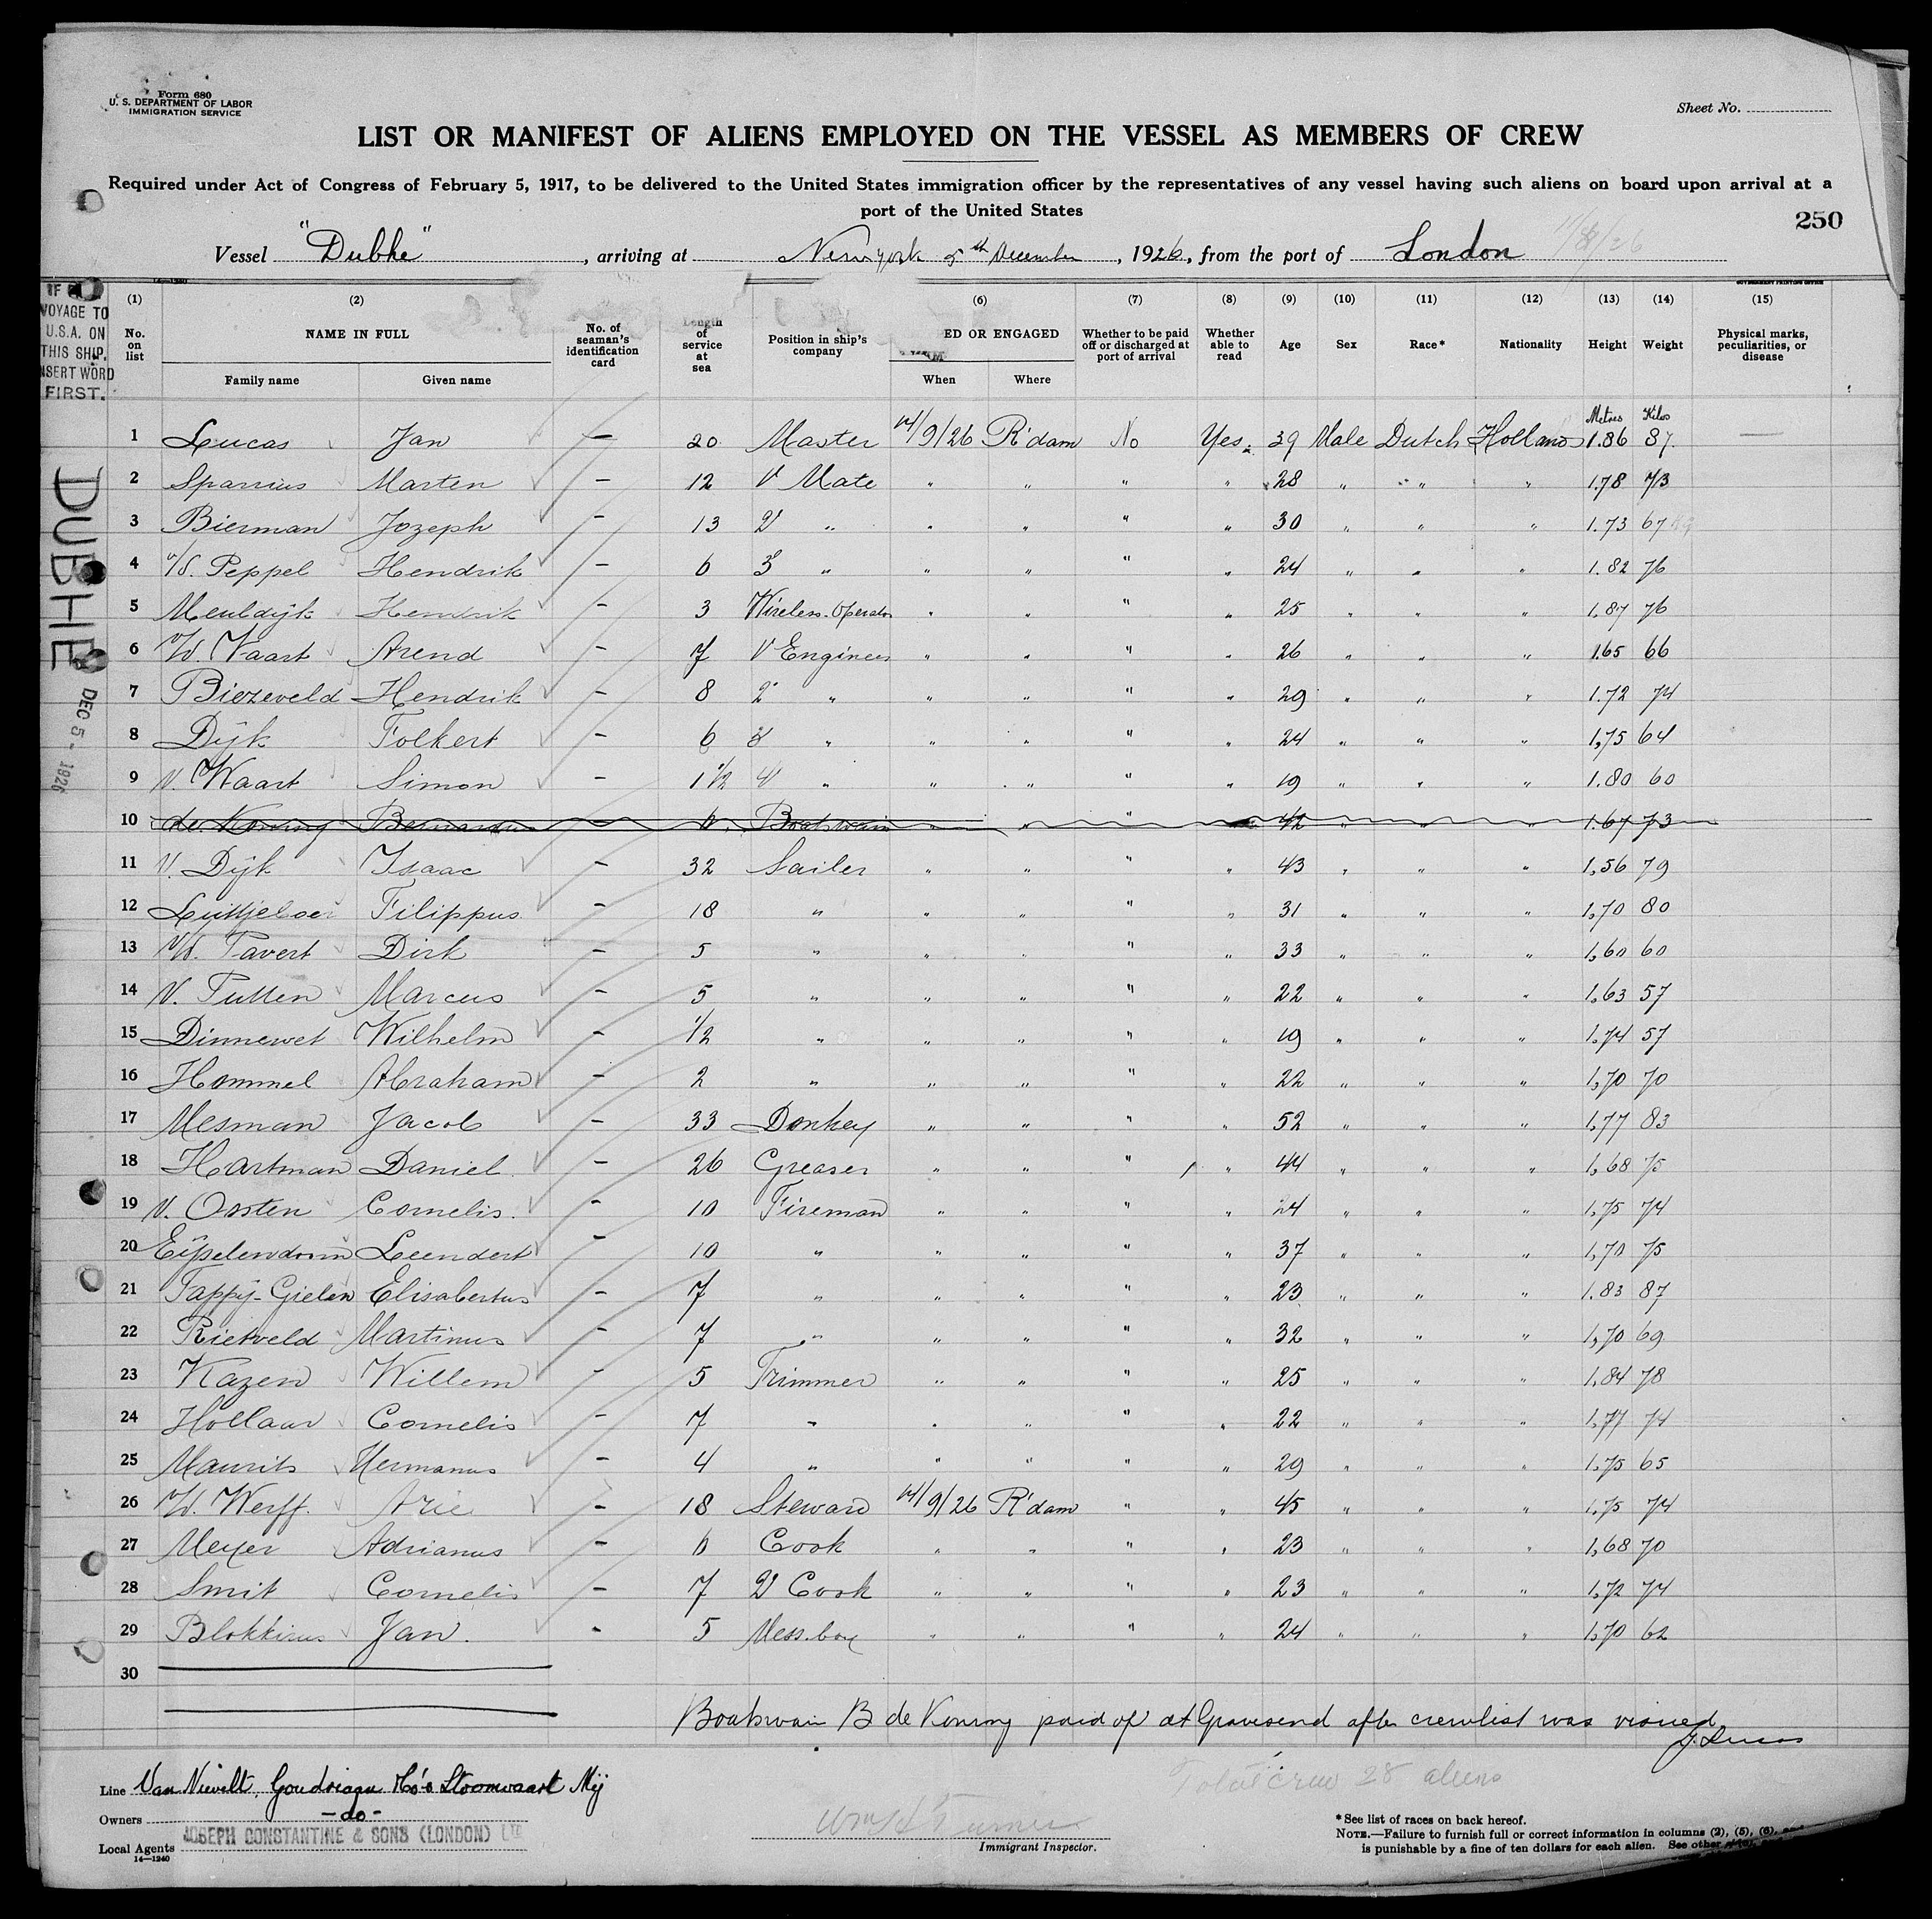 Form 680
U. S. DEPARTMENT OF LABOR
IMMIGRATION SERVICE
Sheet No.
LIST OR MANIFEST OF ALIENS EMPLOYED ON THE VESSEL AS MEMBERS OF CREW
Required under Act of Congress of February 5, 1917, to be delivered to the United States immigration officer by the representatives of any vessel having such aliens on board upon arrival at a
port of the United States
250
Vessel "Dubhe", arriving at New york 5th December, 1926, from the port of London
VOYAGE TO
U.S.A. ON
THIS SHIP,
INSERT WORD
FIRST.
DUBHE
DEC 5 - 1926
(1) (2) (6) (7) (8) (9) (10) (11) (12) (13) (14) (15)
No. on list NAME IN FULL No. of seaman's identification card Length of service at sea Position in ship's company ED OR ENGAGED Whether to be paid off or discharged at port of arrival Whether able to read Age Sex Race* Nationality Height Weight Physical marks, peculiarities, or disease
Family name Given name When Where
Metres Kilos
1 Lucas Jan — 20 Master 14/9/26 R'dam No Yes 39 Male Dutch Holland 1.86 87 —
2 Sparrius Marten — 12 1 Mate " " " " 28 " " " 1.78 73
3 Bierman Jozeph — 13 2 " " " " " 30 " " " 1.73 67
4 v/d. Peppel Hendrik — 6 3 " " " " " 24 " " " 1.82 76
5 Meuldijk Hendrik — 3 Wireless Operator " " " " 25 " " " 1.87 76
6 v/d. Vaart Arend — 7 1 Engineer " " " " 26 " " " 1.65 66
7 Biezeveld Hendrik — 8 2 " " " " " 29 " " " 1.72 74
8 Dijk Folkert — 6 3 " " " " " 24 " " " 1,75 64
9 v. Waart Simon — 1 1/2 4 " " " " " 19 " " " 1.80 60
10 de Koning Bernardus — Boatswain " " " 42 " " " 1.67 73
11 V. Dijk Isaac — 32 Sailer " " " " 43 " " " 1,56 79
12 Filippus — 18 " " " " " 31 " " " 1,70 80
13 v/d. Tavert Dirk — 5 " " " " " 33 " " " 1,60 60
14 V. Putten Marcus — 5 " " " " " 22 " " " 1,63 57
15 Dinnewet Wilhelm — 1/2 " " " " " 19 " " " 1.74 57
16 Hommel Abraham — 2 " " " " " 22 " " " 1,70 70
17 Mesman Jacob — 33 Donkey " " " " 52 " " " 1,77 83
18 Hartman Daniel — 26 Greaser " " " " 44 " " " 1,68 75
19 v. Oosten Cornelis — 10 Fireman " " " " 24 " " " 1,75 74
20 Eijselendoorn Leendert — 10 " " " " " 37 " " " 1,70 75
21 Tappij-Gielen Elisabertus — 7 " " " " " 23 " " " 1.83 87
22 Rietveld Martinus — 7 " " " " " 32 " " " 1,70 69
23 Kazen Willem - 5 Trimmer " " " " 25 " " " 1,84 78
24 Hollaar Cornelis — 7 " " " " " 22 " " " 1,77 74
25 Maurits Hermanus — 4 " " " " " 29 " " " 1,75 65
26 v/d. Werff. Arie — 18 Steward 14/9/26 R'dam " " 45 " " " 1,75 74
27 Meyer Adrianus — 6 Cook " " " " 23 " " " 1,68 70
28 Smit Cornelis — 7 2 Cook " " " " 23 " " " 1,72 74
29 Jan. - 5 Mess.boy " " " " 24 " " " 1,70 62
30
Boatswain B de Koning paid of at Gravesend after crewlist was visued
J. Lucas
Line Van Nievelt, Goudriaan & Co's Stoomvaart Mij
Total crew 28 aliens
Owners -do-
Local Agents JOSEPH CONSTANTINE & SONS (LONDON) LTD
14—1240
Immigrant Inspector.
*See list of races on back hereof.
NOTE.—Failure to furnish full or correct information in columns (2), (5), (6),
is punishable by a fine of ten dollars for each alien. See other